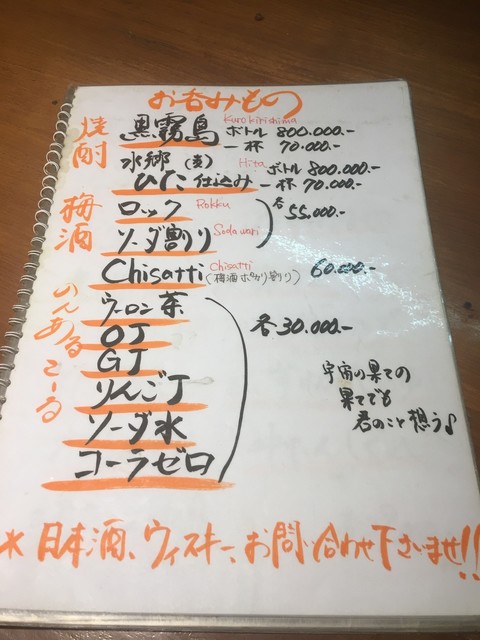 お呑みもの
焼酎
黒霧島 Kurokirishima ボトル 800.000.-
一杯 70.000.-
水郷 (麦) Hita ボトル 800.000.-
ひた 仕込み 一杯 70.000.-
梅酒
ロック Rokku 各 55.000.-
ソーダ割り Sodawari
Chisatti Chisatti 60.000.-
(梅酒ポカリ割り)
のんあるこーる
ウーロン茶
OJ 各 30.000.-
GJ
りんごJ
ソーダ水
コーラゼロ
宇宙の果ての
果てでも
君のこと想う♪
* 日本酒、ウィスキー、お問い合わせ下さいませ!!